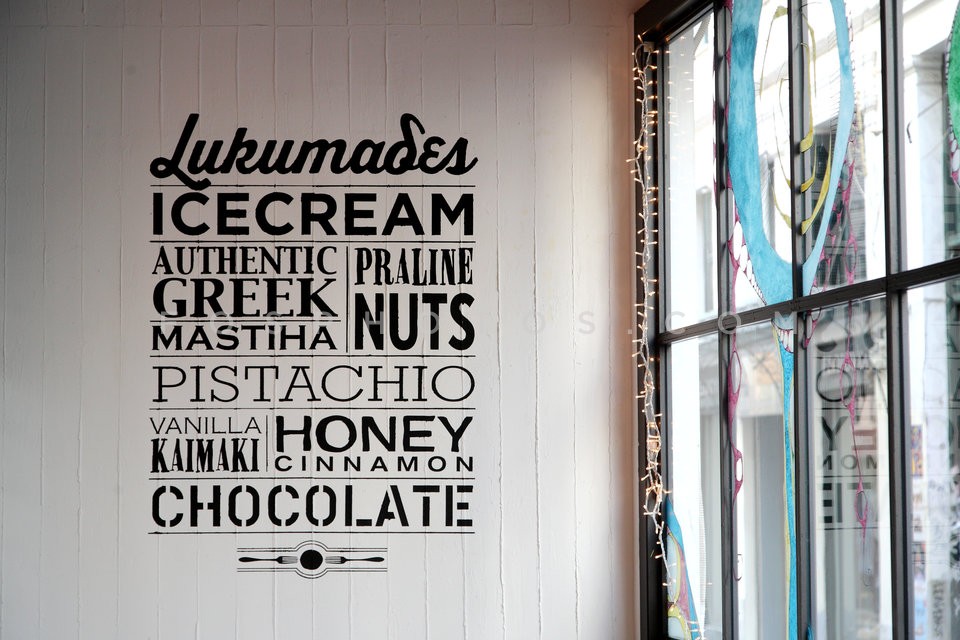 Lukumaδες
ICECREAM
AUTHENTIC
GREEK
MASTIHA
PRALINE
NUTS
PISTACHIO
VANILLA
KAIMAKI
HONEY
CINNAMON
CHOCOLATE